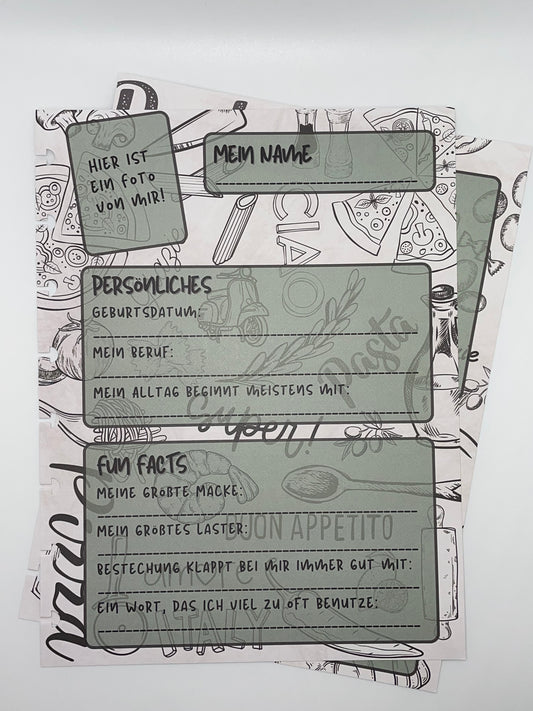 HIER IST
EIN FOTO
VON MIR!
MEIN NAME
CIAO
PERSÖNLICHES
GEBURTSDATUM:
MEIN BERUF:
MEIN ALLTAG BEGINNT MEISTENS MIT:
Pasta
Super!
FUN FACTS
MEINE GRÖßTE MACKE:
MEIN GRÖßTES LASTER:
BUON APPETITO
BESTECHUNG KLAPPT BEI MIR IMMER GUT MIT:
amore
EIN WORT, DAS ICH VIEL ZU OFT BENUTZE:
ITALY